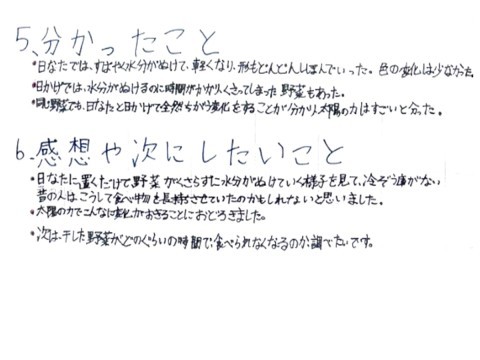 5、分かったこと
・日なたでは、すばやく水分がぬけて、軽くなり、形もどんどんしぼんでいった。色の変化は少なかった。
・日かげでは、水分がぬけるのに時間がかかりくさってしまった野菜もあった。
・同じ野菜でも、日なたと日かげで全然ちがう変化をすることが分かり、太陽の力はすごいと分った。
6、感想や次にしたいこと
・日なたに置くだけで野菜がくさらずに水分がぬけていく様子を見て、冷ぞう庫がない
昔の人は、こうして食べ物を長持ちさせていたのかもしれないと思いました。
・太陽の力でこんなに変化がおきることにおどろきました。
・次は、干した野菜がどのくらいの時間で食べられなくなるのか調べてたいです。